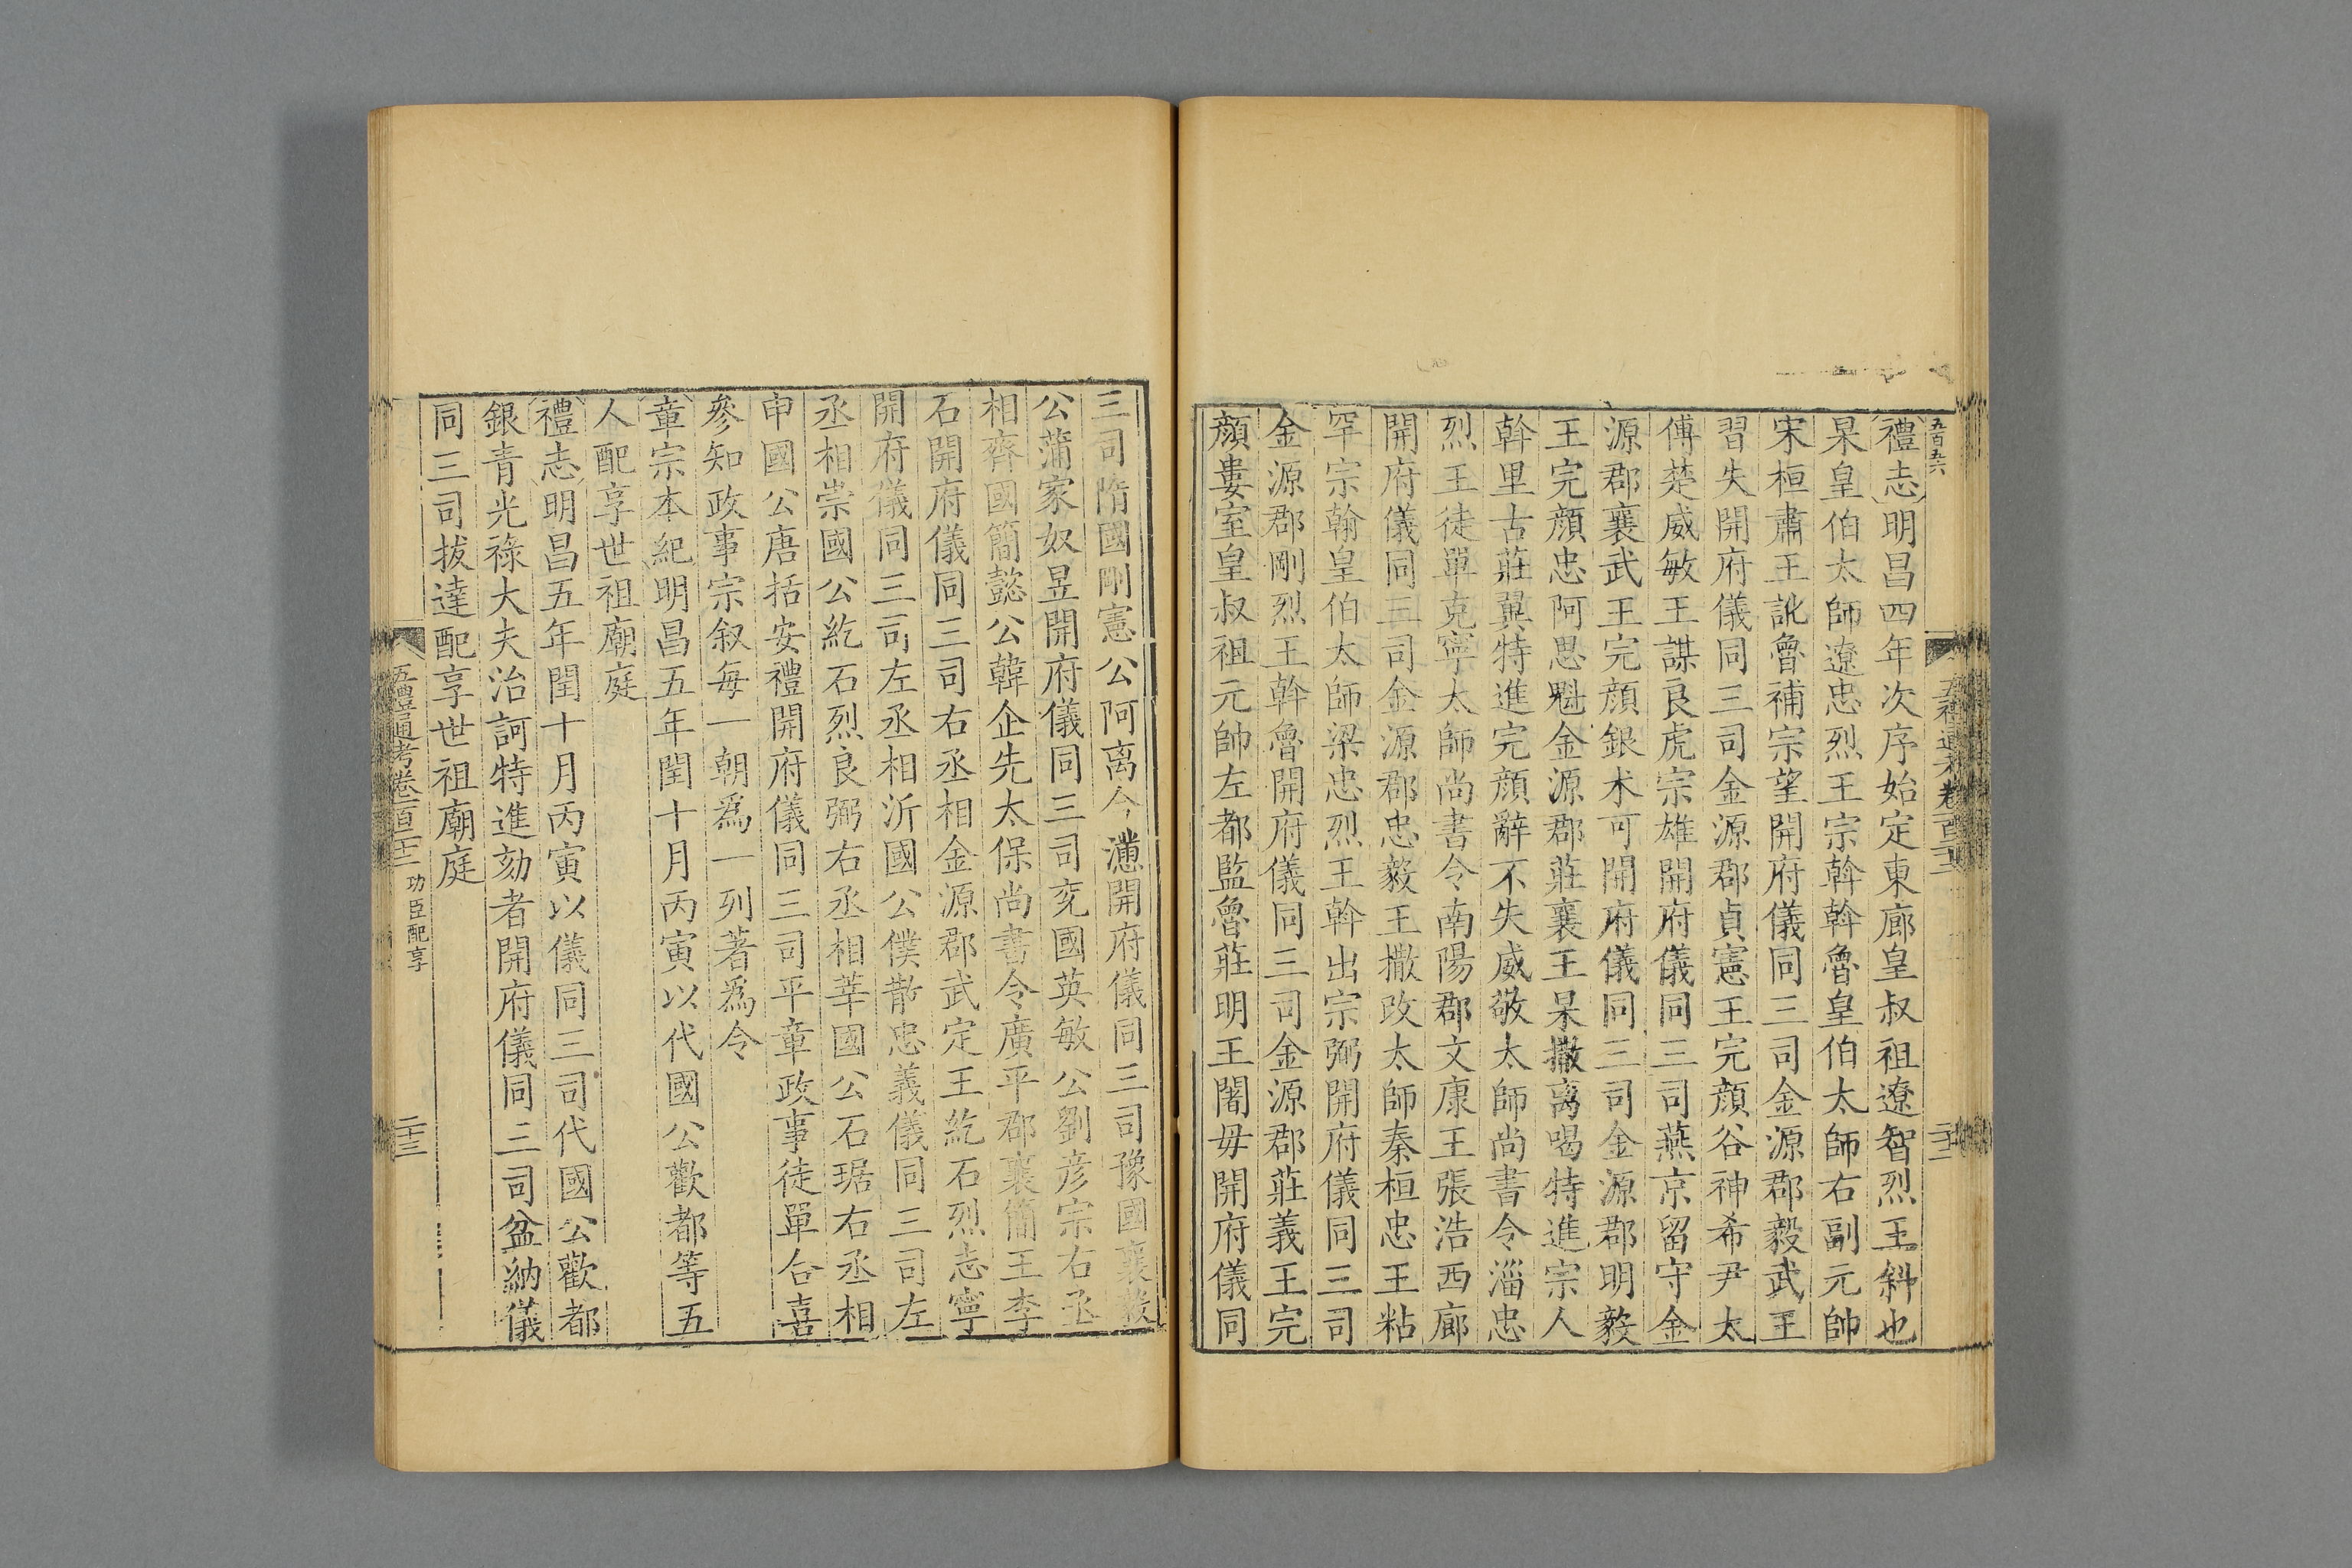 五百五六
禮志明昌四年次序始定東廊皇叔祖遼智烈王斜也
杲皇伯太師遼忠烈王宗斡斡魯皇伯太師右副元帥
宋桓肅王訛魯補宗望開府儀同三司金源郡毅武王
習失開府儀同三司金源郡貞憲王完顏谷神希尹太
傅楚威敏王謀良虎宗雄開府儀同三司燕京留守金
源郡襄武王完顏銀术可開府儀同三司金源郡明毅
王完顏忠阿思魁金源郡莊襄王杲撒离喝特進宗人
斡里古莊翼特進完顏辭不失威敬太師尚書令淄忠
烈王徒單克寧太師尚書令南陽郡文康王張浩西廊
開府儀同三司金源郡忠毅王撒改太師秦桓忠王粘
罕宗翰皇伯太師梁忠烈王斡出宗弼開府儀同三司
金源郡剛烈王斡魯開府儀同三司金源郡莊義王完
顏婁室皇叔祖元帥左都監魯莊明王闍毋開府儀同
三司隋國剛憲公阿离合懣開府儀同三司豫國襄毅
公蒲家奴昱開府儀同三司兗國英敏公劉彥宗右丞
相齊國簡懿公韓企先太保尚書令廣平郡襄簡王李
石開府儀同三司右丞相金源郡武定王紇石烈志寧
開府儀同三司左丞相沂國公僕散忠義儀同三司左
丞相崇國公紇石烈良弼右丞相莘國公石琚右丞相
申國公唐括安禮開府儀同三司平章政事徒單合喜
參知政事宗叙每一朝爲一列著爲令
章宗本紀明昌五年閏十月丙寅以代國公歡都等五
人配享世祖廟庭
禮志明昌五年閏十月丙寅以儀同三司代國公歡都
銀青光祿大夫冶訶特進劾者開府儀同三司盆納儀
同三司拔達配享世祖廟庭
五禮通考卷一百二十二 功臣配享 二十三